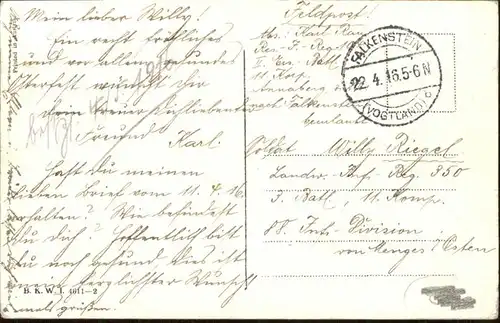 Mein lieber Willy!
Ein recht fröhliches
und vor allem gesundes
Osterfest wünscht dir
dein treuer
Freund Karl.
Hast Du meinen
lieben Brief vom 11. 4. 16
erhalten? Wie befindest
Du dich? Hoffentlich bist
Du noch gesund. Dies ist
mein herzlichster Wunsch!
B. K. W. I. 4611-2
Feldpost!
Abs. Karl
II. Ers. Batl.
11. Korp.
Annaberg
Falkenstein
FALKENSTEIN
22.4.16.5-6N
(VOGTLAND) c
Soldat Willy Riegel
Landw. Inf. Reg. 350
3. Batl. 11. Komp.
88. Inf. Division
von Menges / Osten